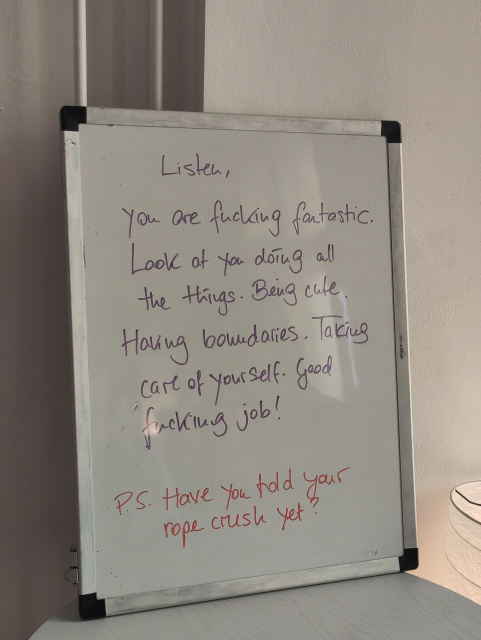 Listen,
You are fucking fantastic.
Look at you doing all
the things. Being cute.
Having boundaries. Taking
care of yourself. Good
fucking job!
P.S. Have you told your
rope crush yet?